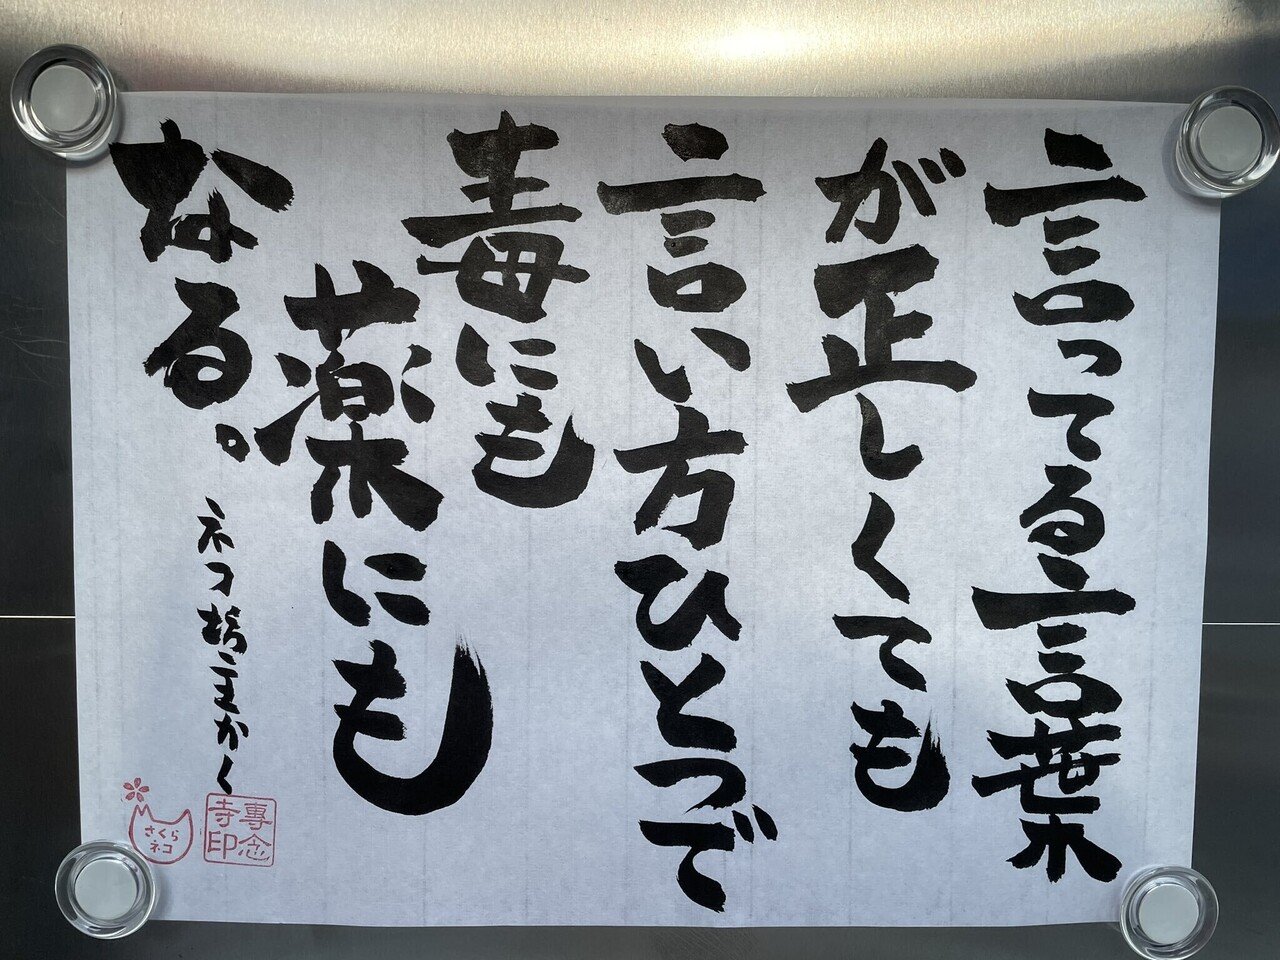 言ってる言葉
が正しくても
言い方ひとつで
毒にも
薬にも
なる。
ネコ坊主かく
さくら
ネコ
專念
寺印